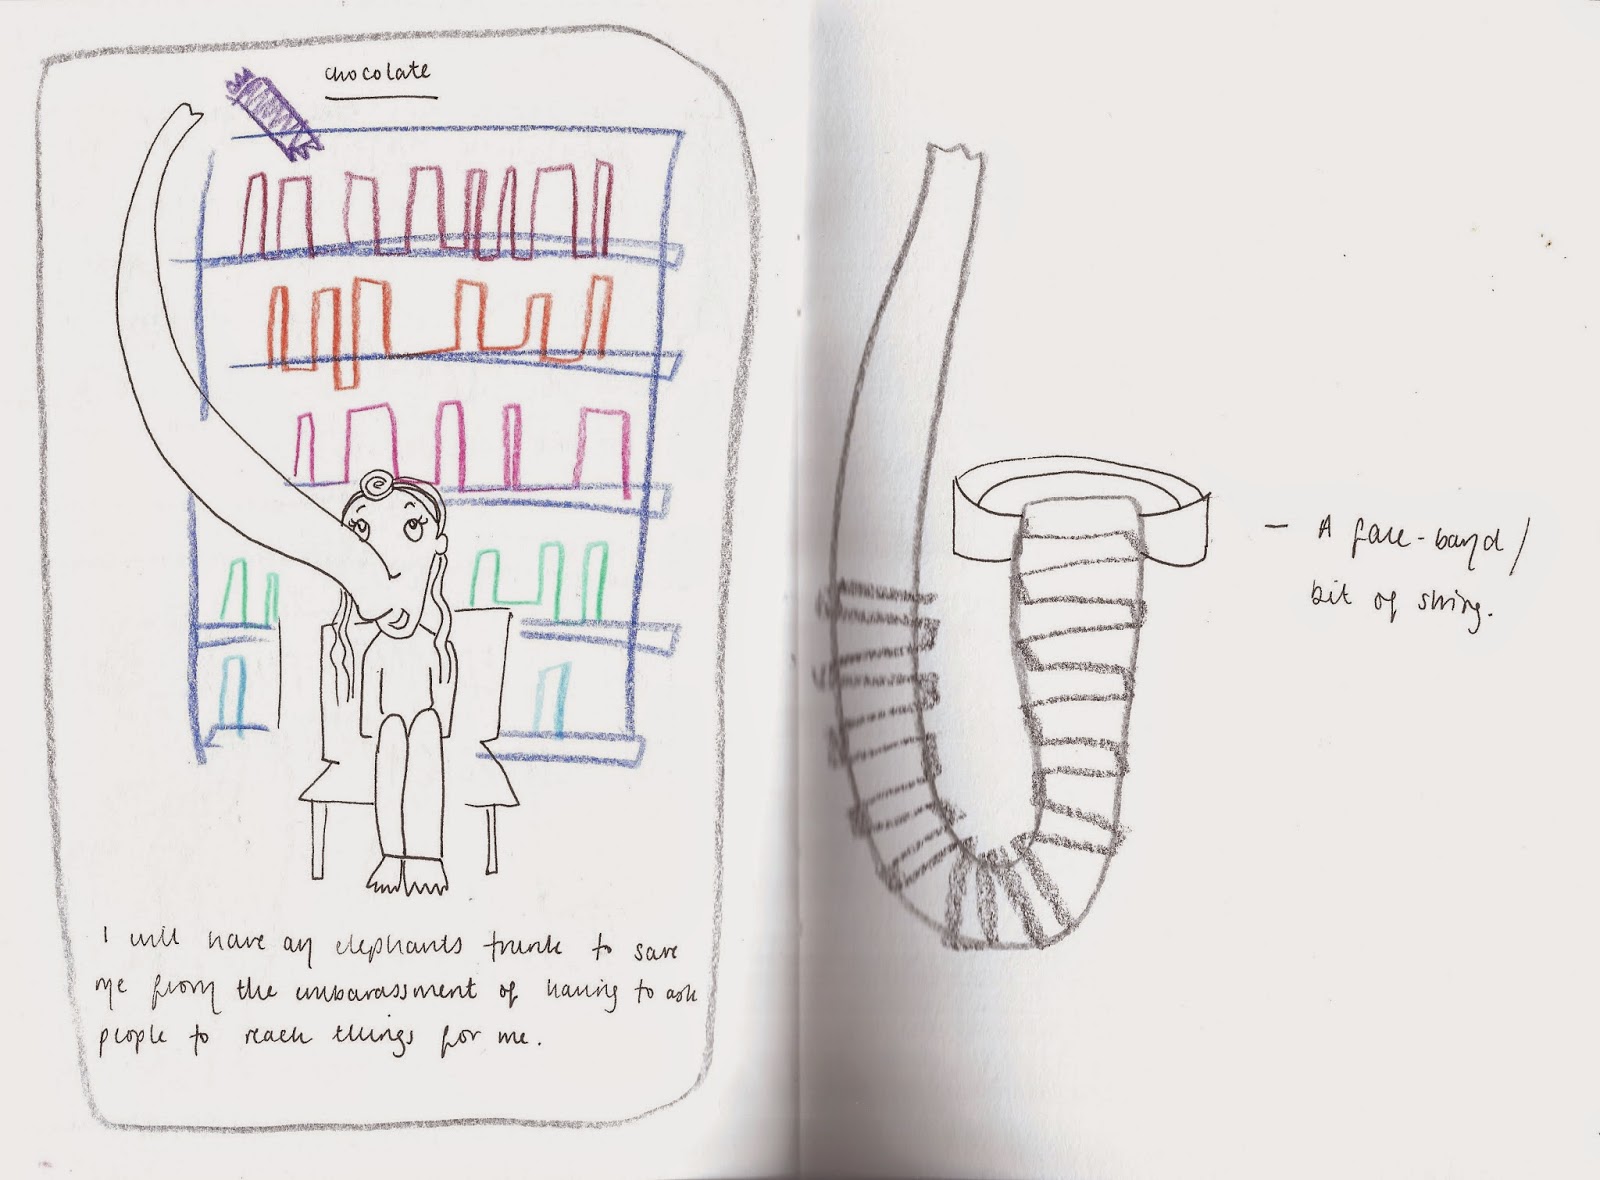 chocolate
I will have an elephants trunk to save
me from the embarassment of having to ask
people to reach things for me.
— A face-band/
bit of string.